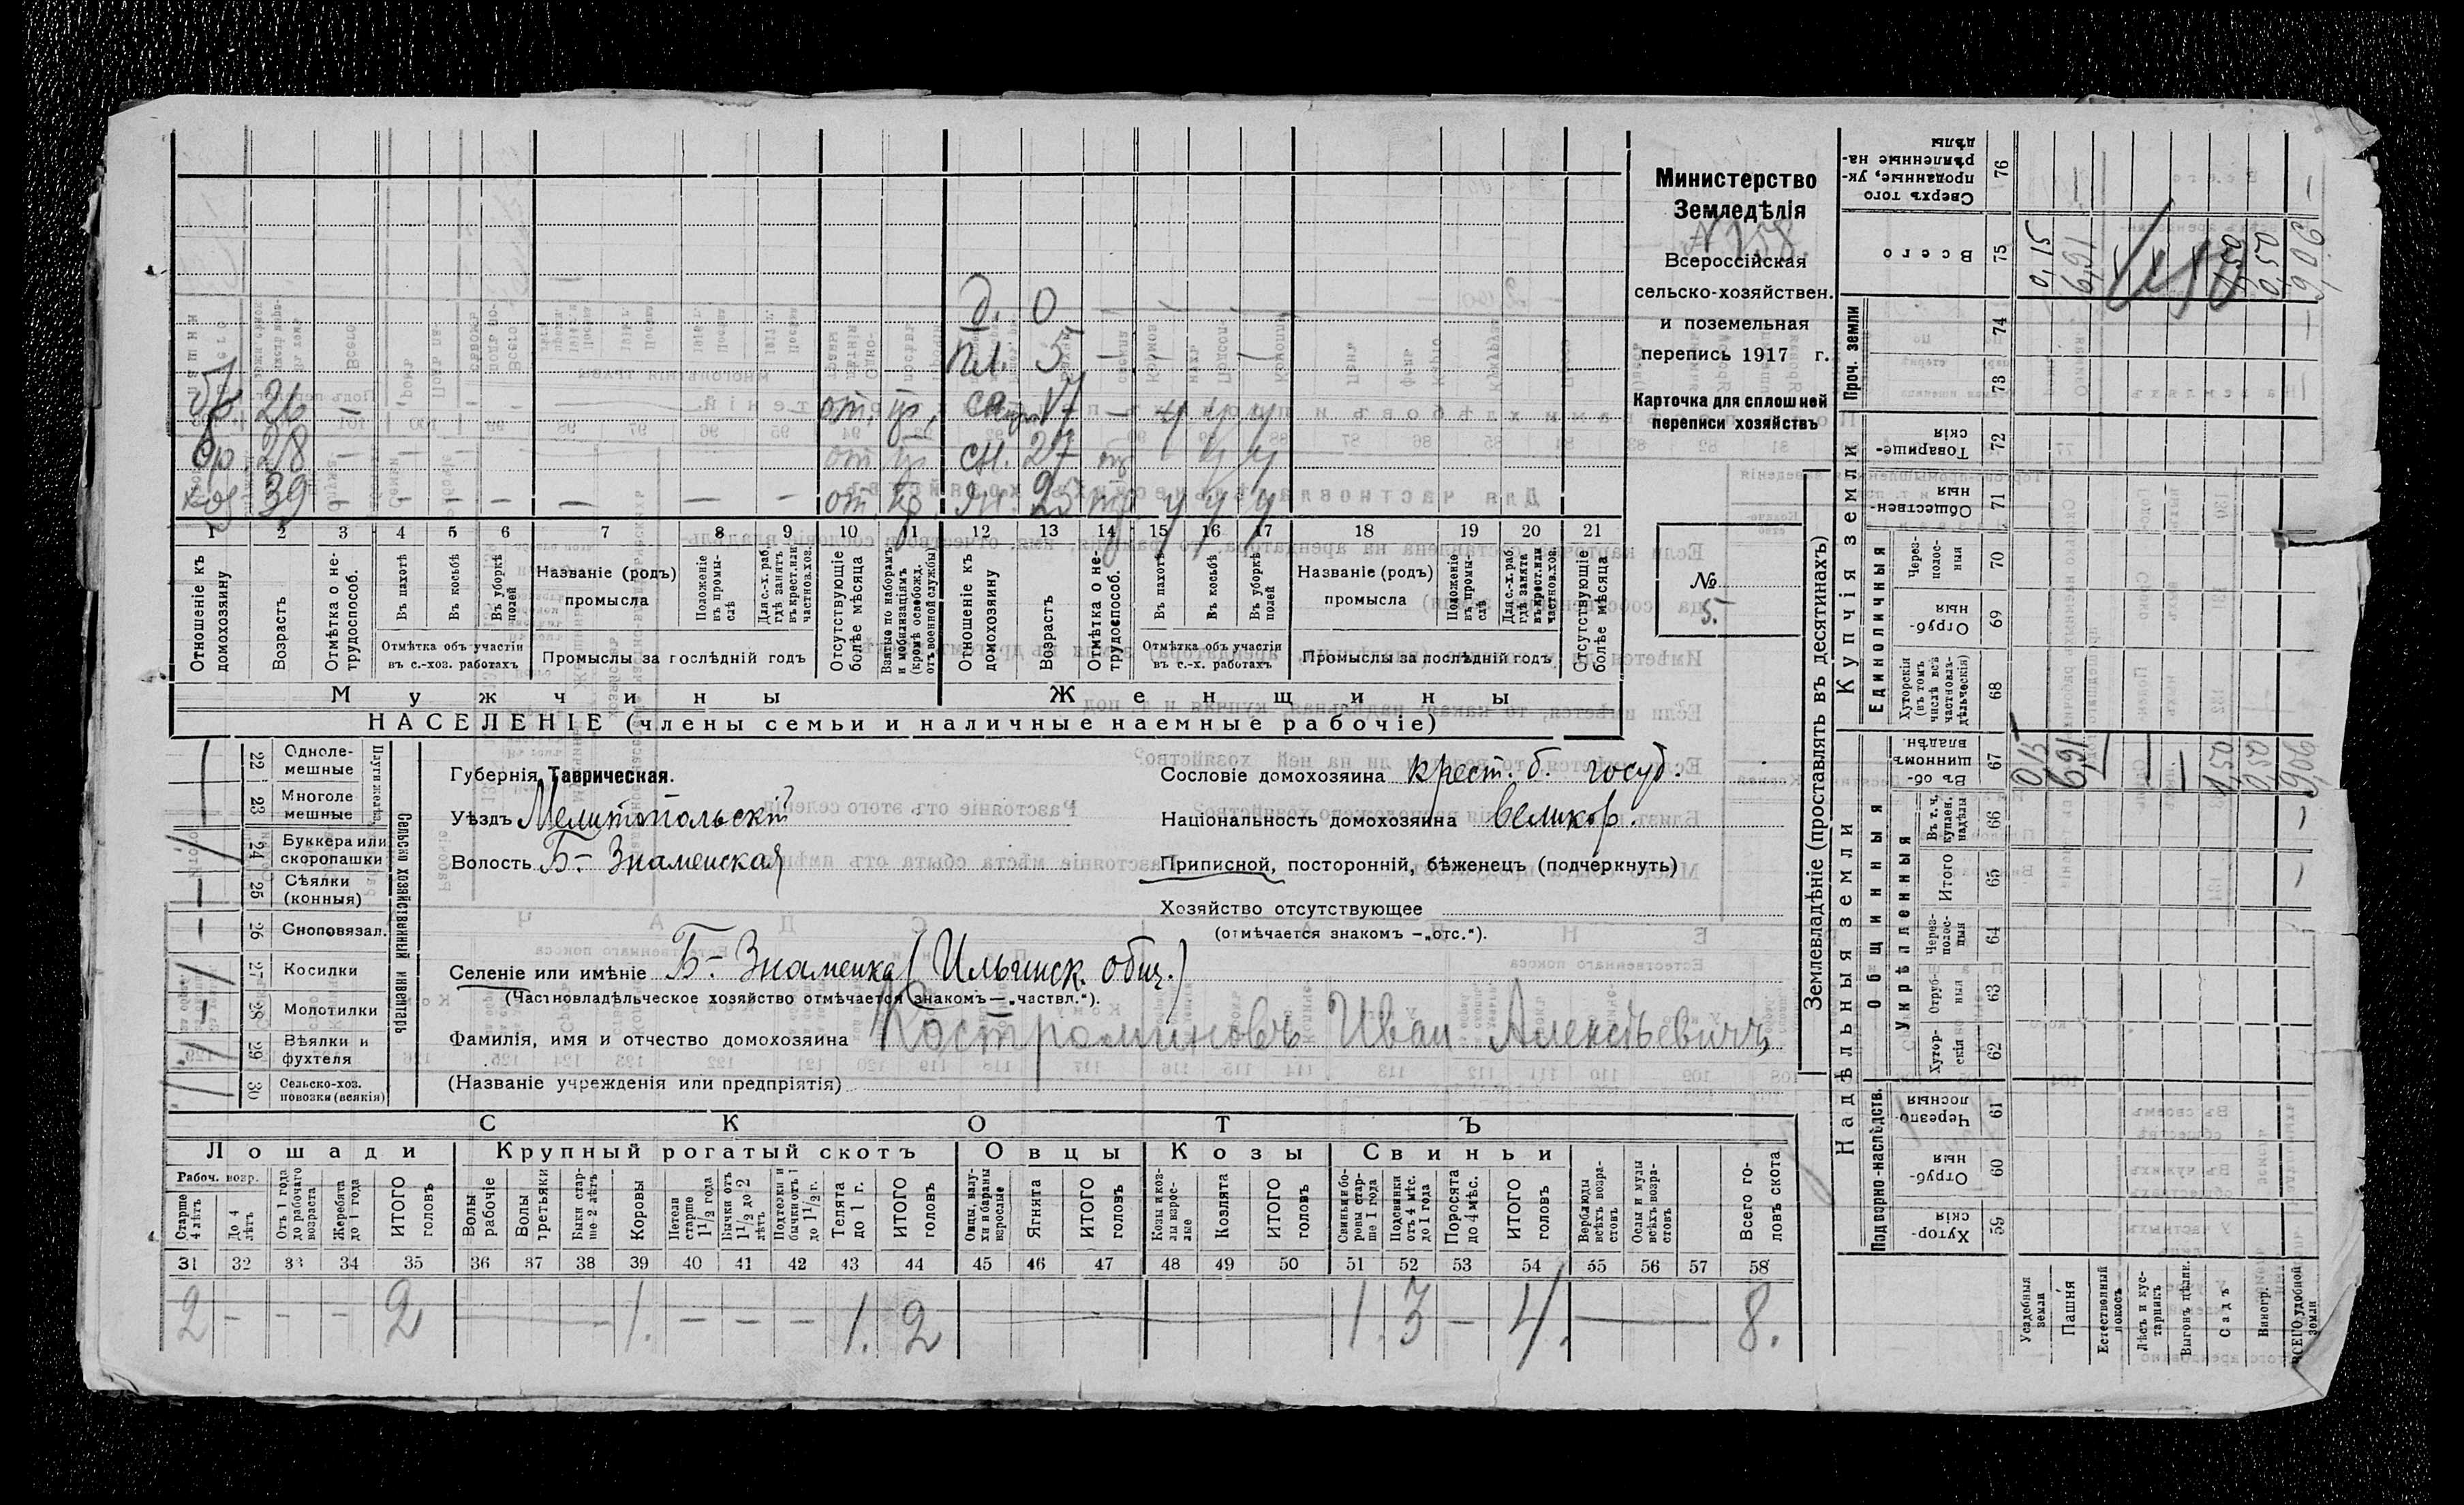 Министерство
Земледѣлія
Всероссійская
сельско-хозяйствен.
и поземельная
перепись 1917 г.
Карточка для сплошной
переписи хозяйствъ
№
5.
д. 0
пл. 5
бр 26 — от. 17 у у у
бр. 28 — от сн. 27 у у
хоз 39 — — — — — — — от жн. 25 у у у
1 2 3 4 5 6 7 8 9 10 11 12 13 14 15 16 17 18 19 20 21
Отношеніе къ домохозяину
Возрастъ
Отмѣтка о не-трудоспособ.
Въ пахотѣ
Въ косьбѣ
Въ уборкѣ полей
Отмѣтка объ участіи въ с.-хоз. работахъ
Названіе (родъ) промысла
Положеніе въ промы-слѣ
Для с.-х. раб. гдѣ занятъ въ крест. или частнов. хоз.
Промыслы за послѣдній годъ
Отсутствующіе болѣе мѣсяца
Взятые по наборамъ и мобилизаціямъ (кромѣ освобожд. отъ военной службы)
Отношеніе къ домохозяину
Возрастъ
Отмѣтка о не-трудоспособ.
Въ пахотѣ
Въ косьбѣ
Въ уборкѣ полей
Отмѣтка объ участіи въ с.-х. работахъ
Названіе (родъ) промысла
Положеніе въ промы-слѣ
Для с.-х. раб. гдѣ занята въ крест. или частнов. хоз.
Промыслы за послѣдній годъ
Отсутствующіе болѣе мѣсяца
Мужчины Женщины
НАСЕЛЕНІЕ (члены семьи и наличные наемные рабочіе)
Сельско хозяйственный инвентарь
Плуги желѣз.
22 Одноле-мешные
23 Многоле мешные
24 Буккера или скоропашки
25 Сѣялки (конныя)
26 Сноповязал.
27 Косилки
28 Молотилки
29 Вѣялки и фухтеля
30 Сельско-хоз. повозки (всякія)
Губернія Таврическая.
Уѣздъ Мелитопольскій
Волость Б.-Знаменская
Сословіе домохозяина крест. б. госуд.
Національность домохозяина великор.
Приписной, посторонній, бѣженецъ (подчеркнуть)
Хозяйство отсутствующее
(отмѣчается знакомъ —„отс.“).
Селеніе или имѣніе Б.- Знаменка (Ильинск. общ.)
(Частновладѣльческое хозяйство отмѣчается знакомъ—„частвл.“).
Фамилія, имя и отчество домохозяина Костроминовъ Иван Алексѣевичъ
(Названіе учрежденія или предпріятія)
СКОТЪ
Лошади Крупный рогатый скотъ Овцы Козы Свиньи
Рабоч. возр.
Старше 4 лѣтъ
До 4 лѣтъ
Отъ 1 года до рабочаго возраста
Жеребята до 1 года
ИТОГО головъ
Волы рабочіе
Волы третьяки
Быки стар-ше 2 лѣтъ
Коровы
Нетели старше 1 1/2 года
Бычки отъ 1 1/2 до 2 лѣтъ
Подтелки и бычки отъ 1 до 1 1/2 г.
Телята до 1 г.
ИТОГО головъ
Овцы, валу-хи и бараны взрослые
Ягнята
ИТОГО головъ
Козы и коз-лы взрос-лые
Козлята
ИТОГО головъ
Свиньи и бо-ровы стар-ше 1 года
Подсвинки отъ 4 мѣс. до 1 года
Поросята до 4 мѣс.
ИТОГО головъ
Верблюды всѣхъ возра-стовъ
Ослы и мулы всѣхъ возра-стовъ
Всего го-ловъ скота
31 32 33 34 35 36 37 38 39 40 41 42 43 44 45 46 47 48 49 50 51 52 53 54 55 56 57 58
2 — — — 2 — 1. — — — 1. 2 — 1. 3 — 4. — 8.
Землевладѣніе (проставлять въ десятинахъ)
Надѣльныя земли Купчія земли Проч. земли
Подворно-наслѣдств. Общинныя Единоличныя
Укрѣпленныя
Хутор-скія 59
Отруб-ныя 60
Черезпо-лосныя 61
Хутор-скія 62
Отруб-ныя 63
Через-полос-ныя 64
Итого 65
Въ т. ч. купчен. надѣлы 66
Въ об-щинномъ владѣн. 67
Хуторскія (въ томъ числѣ всѣ частновла-дѣльческія) 68
Отруб-ныя 69
Через-полос-ныя 70
Обществен-ныя 71
Товарище-скія 72
73
74
Всего 75
Сверхъ того проданные, ук-рѣпленные на-дѣлы 76
Усадебныя земли 0,15 0,15
Пашня 6,91 6,91 —
Естественный покосъ
Лѣсъ и кус-тарникъ
Выгонъ цѣлин.
Садъ 1,50 1,50
Виногр. 0,50 0,50
ВСЕГО удобной земли — — 9,06 — 9,06 —